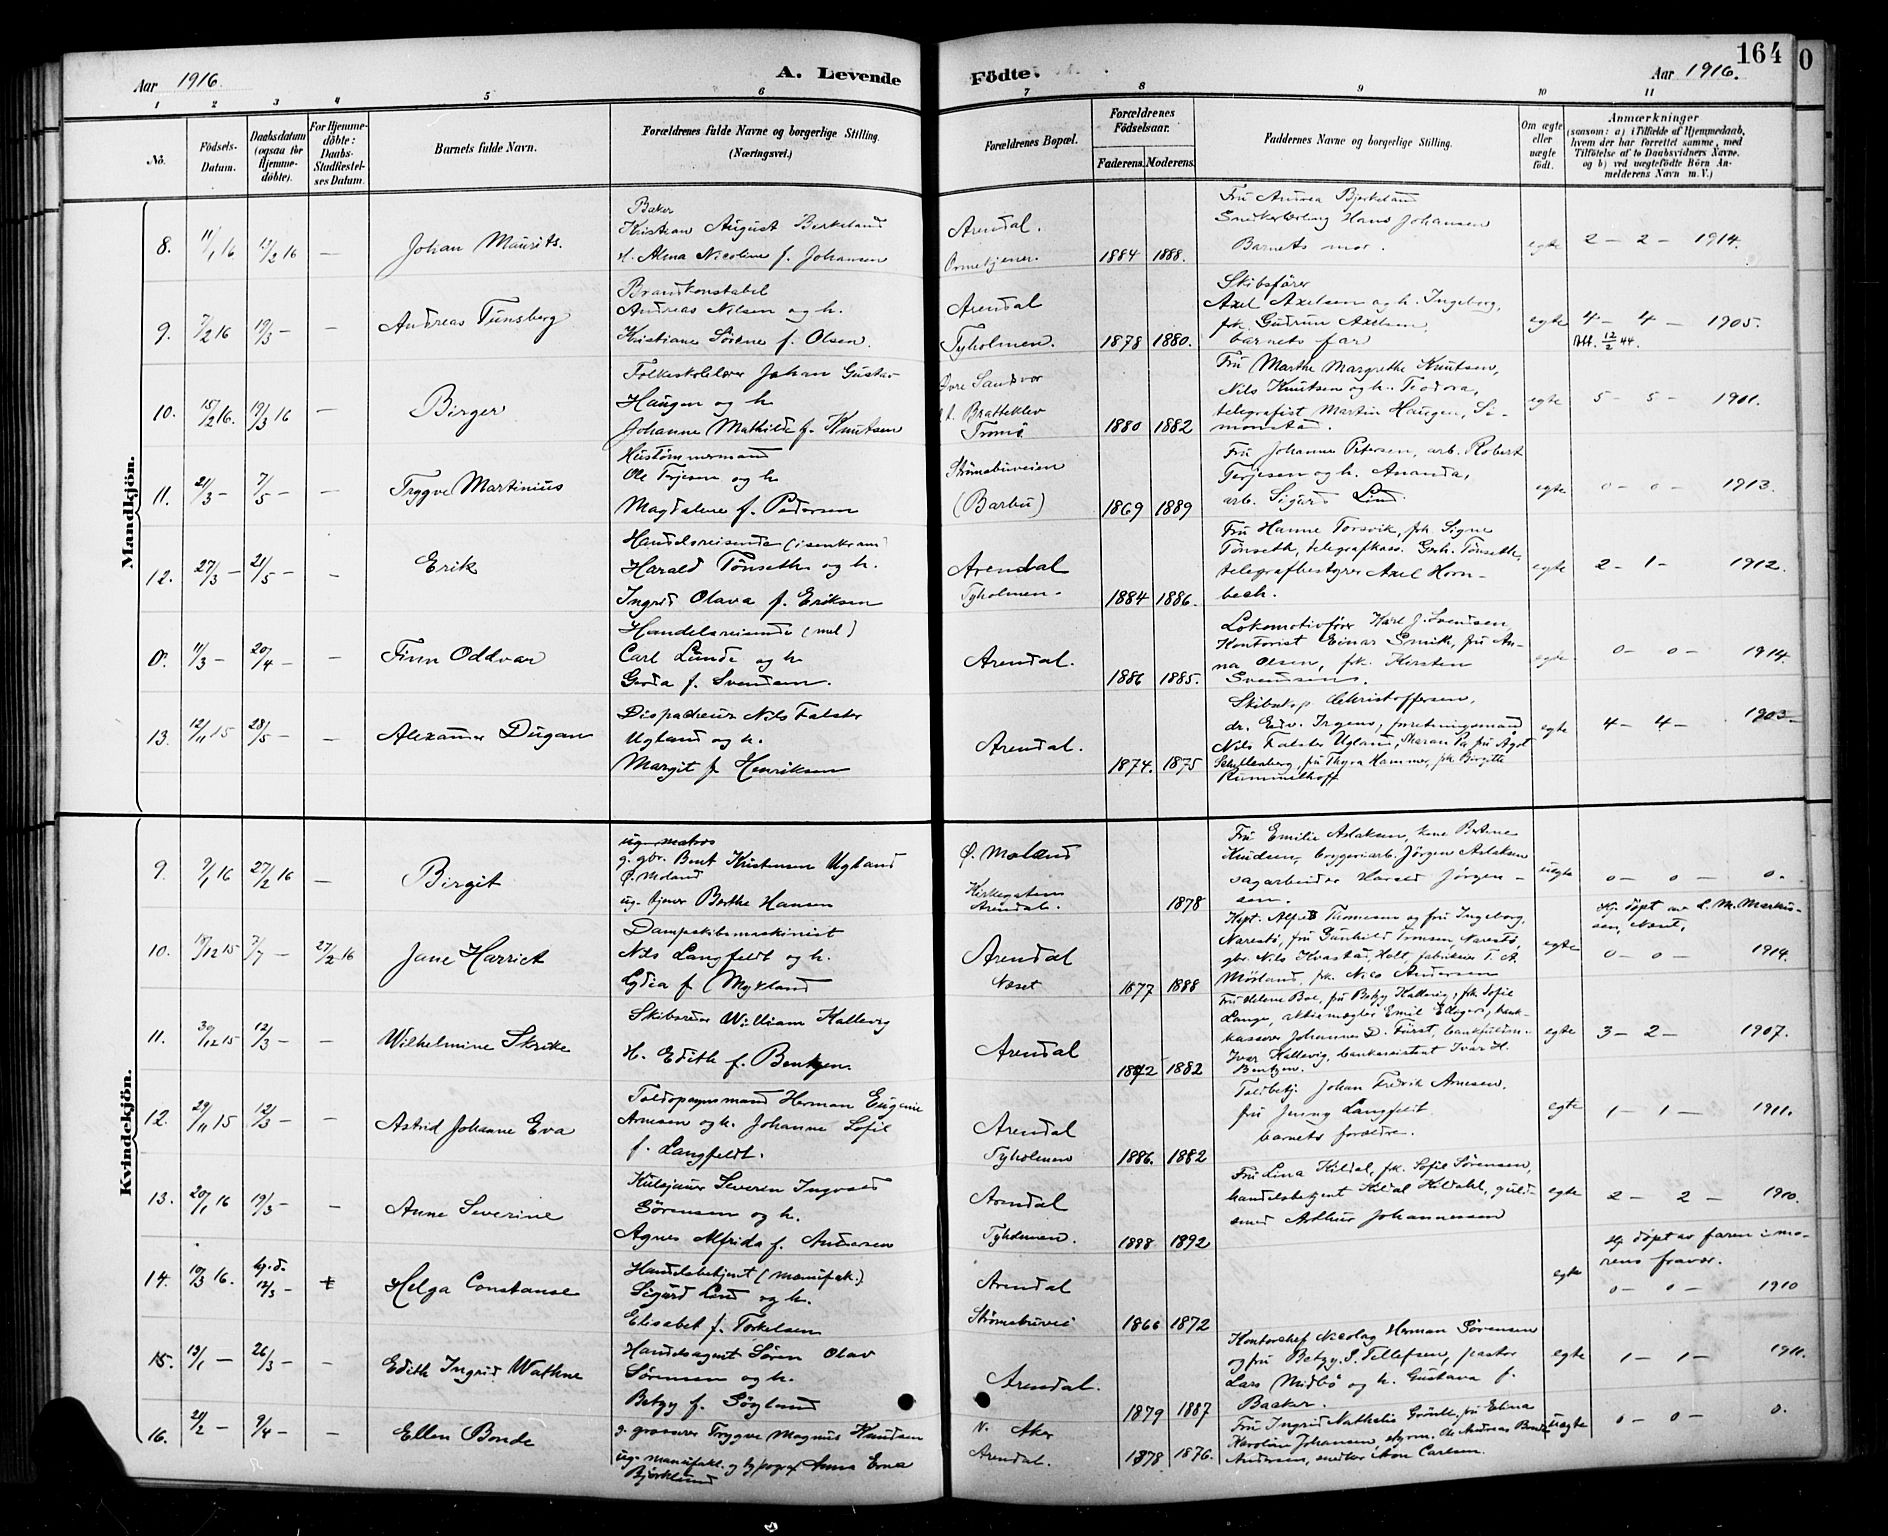 Aar 1916.
A. Levende
Födte.
Aar 1916.
164
0
1 2 3 4 5 6 7 8 9 10 11
No.
Födsels-Datum.
Daabsdatum (ogsaa for Hjemmedöbte).
For Hjemmedöbte: Daabs-Stadfæstelses Datum.
Barnets fulde Navn.
Forældrenes fulde Navne og borgerlige Stilling. (Næringsvei.)
Forældrenes Bopæl.
Forældrenes Födselsaar.
Faderens. Moderens.
Faddernes Navne og borgerlige Stilling.
Om ægte eller uægte født.
Anmærkninger
(saasom: a) i Tilfælde af Hjemmedaab,
hvem der har forrettet samme, med
Tilföielse af to Daabsvidners Navne,
og b) ved uægtefödte Börn Anmelderens Navn m. V.)
Mandkjön.
8. 11/1 16 13/2 16 — Johan Maurits.
Baker
Kristian August Berkeland
H. Alma Nicoline f. Johansen
Arendal.
1884 1888.
Fru Andrea Bjerkeland
Snekkerlærling Hans Johansen
Barnets mor.
egte 2 — 2 — 1914.
9. 7/2 16 19/3 — — Andreas Tunsberg
Brandkonstabel
Andreas Nilsen og h.
Kristiane Sörine f. Olsen.
Arendal
Tyholmen.
1878 1880.
Skibsförer
Axel Axelsen og h. Ingeborg,
frk. Gudrun Axelsen,
barnets far
egte 4 — 4 — 1905.
Att. 12/2 44.
10. 15/2 16. 19/3 16 — Birger
Folkeskolelærer Johan Gustav
Haugen og h.
Johanne Mathilde f. Knutsen
Øvre Sandvor
Bratteklev
Tromö
1880 1882
Fru Marthe Margrethe Knutsen,
Nils Knutsen og h. Teodora,
telegrafist Martin Haugen, Simonstad.
egte 5 — 5 — 1901.
11. 21/3 — 7/5 — — Trygve Martinius
Hustömmermand
Ole Terjesen og h
Magdalene f. Pedersen
Strömsbuveien
(Barbu)
1869 1889
Fru Johanne Petersen, arb. Robert
Terjesen og h. Amanda,
arb. Sigurd Lind.
egte 0 — 0 — 1913.
12. 27/3 — 21/5 — — Erik
Handelsreisende (isenkram)
Harald Tönseth og h.
Ingrid Olava f. Eriksen
Arendal
Tyholmen.
1884 1886.
Fru Hanne Torsvik, frk. Signe
Tönseth, telegrafkass. Gerh. Tönseth,
telegrafbestyrer Axel Hornbech.
egte 2 — 1 — 1912.
0. 11/3 — 20/4 — — Finn Oddvar
Handelsreisende (mel)
Carl Lunde og h.
Gerda f. Svendsen.
Arendal.
1886 1885.
Lokomotivförer Karl J. Svendsen,
Kontorist Einar Smith, fru Anna Olsen, frk. Kirsten
Svendsen.
egte 0 — 0 — 1914.
13. 12/11 15 28/5 — — Alexander Dugan
Dispacheur Nils Falster
Ugland og h.
Margit f. Henriksen
Arendal.
1874. 1875
Skibskap. Christoffersen,
dr. Edv. Irgens, forretningsmand
Nils Falster Ugland, Sharan Pa fru Agot
Schyllenberg, fru Thyra Hammer, frk. Birgitte
Rummelhoff
egte 4 — 4 — 1903
Kvindekjön.
9. 9/1 16 27/2 16 — Birgit
ug. matros
g. gbr. Bent Kristensen Ugland
Ø. Moland
ug. tjener Berthe Hansen
Ø. Moland
Kirkegaten
Arendal.
1878
Fru Emilie Aslaksen, kone Bertine
Knudsen, bryggeriarb. Jörgen Aslaksen
sagarbeider Harald Jörgensen.
uegte 0 — 0 — 0.
10. 19/12 15 7/7 — 27/2 16 Jane Harriet
Dampskibsmaskinist
Nils Langfeldt og h.
Lydia f. Mykland
Arendal
Næset
1877 1888
Kapt. Alfred Thomesen og fru Ingeborg,
Narestö, fru Gunhild Tronsen, Narestö,
gbr. Nils Kvastad, Holt, fabrikeier T. A.
Mörland, frk. Nico Andersen
egte
Hj. döpt av L. M. Markussen, Næset,
0 — 0 — 1914.
11. 30/12 15 12/3 — — Wilhelmine Skrike
Skibsreder William Kallevig
H. Edith f. Bentzen.
Arendal
1872 1882
Fru Helene Boe, fru Betzy Kallevig, frk Sofie
Lange, aktiemægler Emil Edigers, bankkasserer Johannes D. Fürst, bankfuldm.
Ivar Kallevig, bankassistent Ivar H.
Bentzen.
egte 3 — 2 — 1907.
12. 29/11 15 12/3 — — Astrid Johanne Eva
Toldopsynsmand Herman Eugenie
Arnesen og h. Johanne Sofie
f. Langfeldt.
Arendal
Tyholmen
1886. 1882
Toldbetj. Johan Fredrik Arnesen.
fru Jenny Langfeldt.
barnets forældre.
egte 1 — 1 — 1911.
13. 20/1 16 19/3 — — Anne Severine
Kulejauer Severin Ingvald
Sörensen og h.
Agnes Alfrida f. Andersen
Arendal
Tyholmen.
1888 1892
Fru Lina Kildal, frk. Sofie Sörensen,
handelsbetjent Kildal Kildahl, guldsmed Arthur Johannessen
egte 2 — 2 — 1910.
14. 10/3 16. hj. d. 12/3 — Helga Constanse
Handelsbetjent (manufak.)
Sigurd Lind og h.
Elisabet f. Torkelsen
Arendal
Strömsbuvei
1866 1872
egte
Hj. döpt av faren i morens fravær.
0 — 0 — 1910
15. 13/1 — 26/3 — — Edith Ingrid Wathne
Handelsagent Sören Olav
Sörensen og h.
Betzy f. Sögland
Arendal.
1879 1887
Kontorchef Nicolay Herman Sörensen
og fru Betzy. S. Tellefsen, pastor
Lars Midbö og h. Gustava f.
Backer.
egte 1 — 1 — 1911.
16. 21/2 — 9/4 — — Ellen Bonde
g. grosserer Trygve Magnus Knudsen
ug. manufakt. og typograf Anna Erna
Bjorklund
V. Aker
Arendal.
1878 1876.
Fru Ingrid Nathalie Grönli, fru Elina
Karoline Johansen, styrm. Ole Andreas Bonde
Andersen, snedker Aron Carlsen.
uegte 0 — 0 — 0.